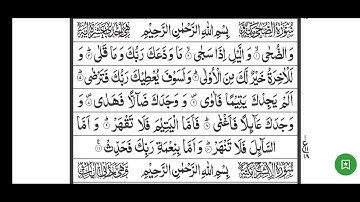 سُوْرَةُ الضُّحٰى مَكِّيَّةٌ بِسْمِ اللّٰهِ الرَّحْمٰنِ الرَّحِيْمِ
وَ الضُّحٰىۙ وَ الَّيْلِ اِذَا سَجٰىۙ مَا وَدَّعَكَ رَبُّكَ وَ مَا قَلٰىؕ وَ
لَلْاٰخِرَةُ خَيْرٌ لَّكَ مِنَ الْاُوْلٰىؕ وَ لَسَوْفَ يُعْطِيْكَ رَبُّكَ فَتَرْضٰىؕ
اَلَمْ يَجِدْكَ يَتِيْمًا فَاٰوٰى۪ وَ وَجَدَكَ ضَآلًّا فَهَدٰى۪ وَ
وَجَدَكَ عَآىِٕلًا فَاَغْنٰىؕ فَاَمَّا الْيَتِيْمَ فَلَا تَقْهَرْؕ وَ اَمَّا
السَّآىِٕلَ فَلَا تَنْهَرْؕ وَ اَمَّا بِنِعْمَةِ رَبِّكَ فَحَدِّثْ
بِسْمِ اللّٰهِ الرَّحْمٰنِ الرَّحِيْمِ